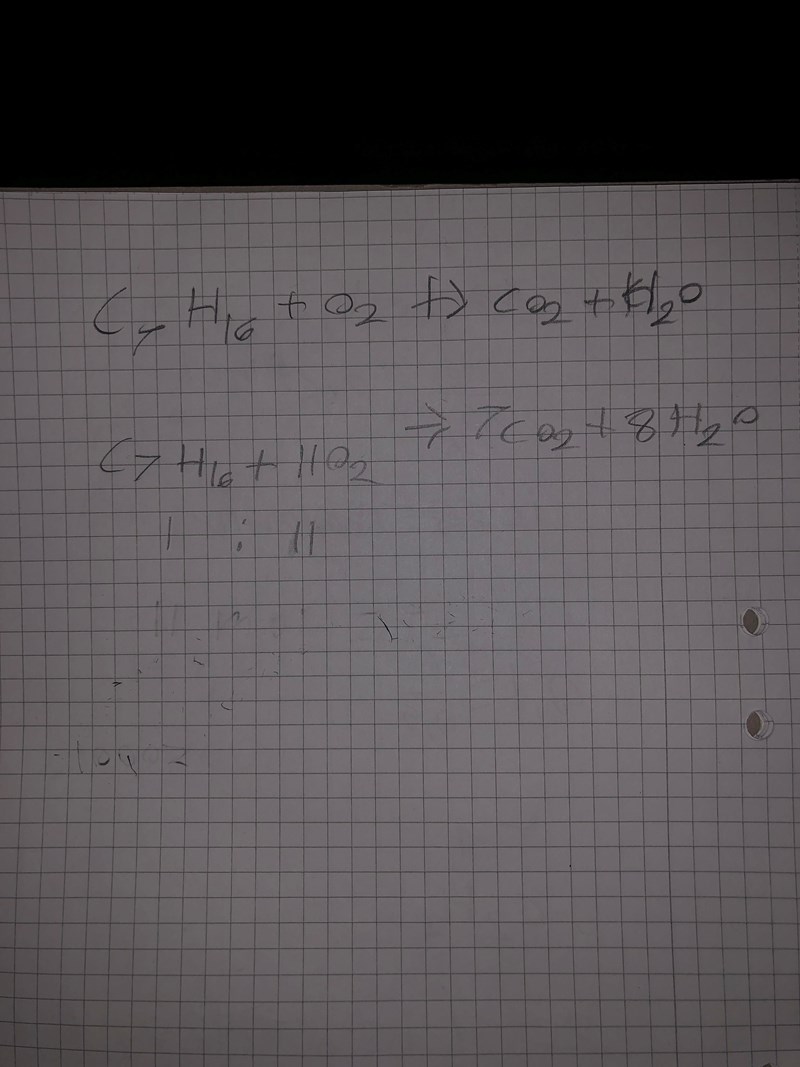 C₇ H₁₆ + O₂ → CO₂ + H₂O
C₇ H₁₆ + 11O₂ → 7CO₂ + 8H₂O
1 : 11